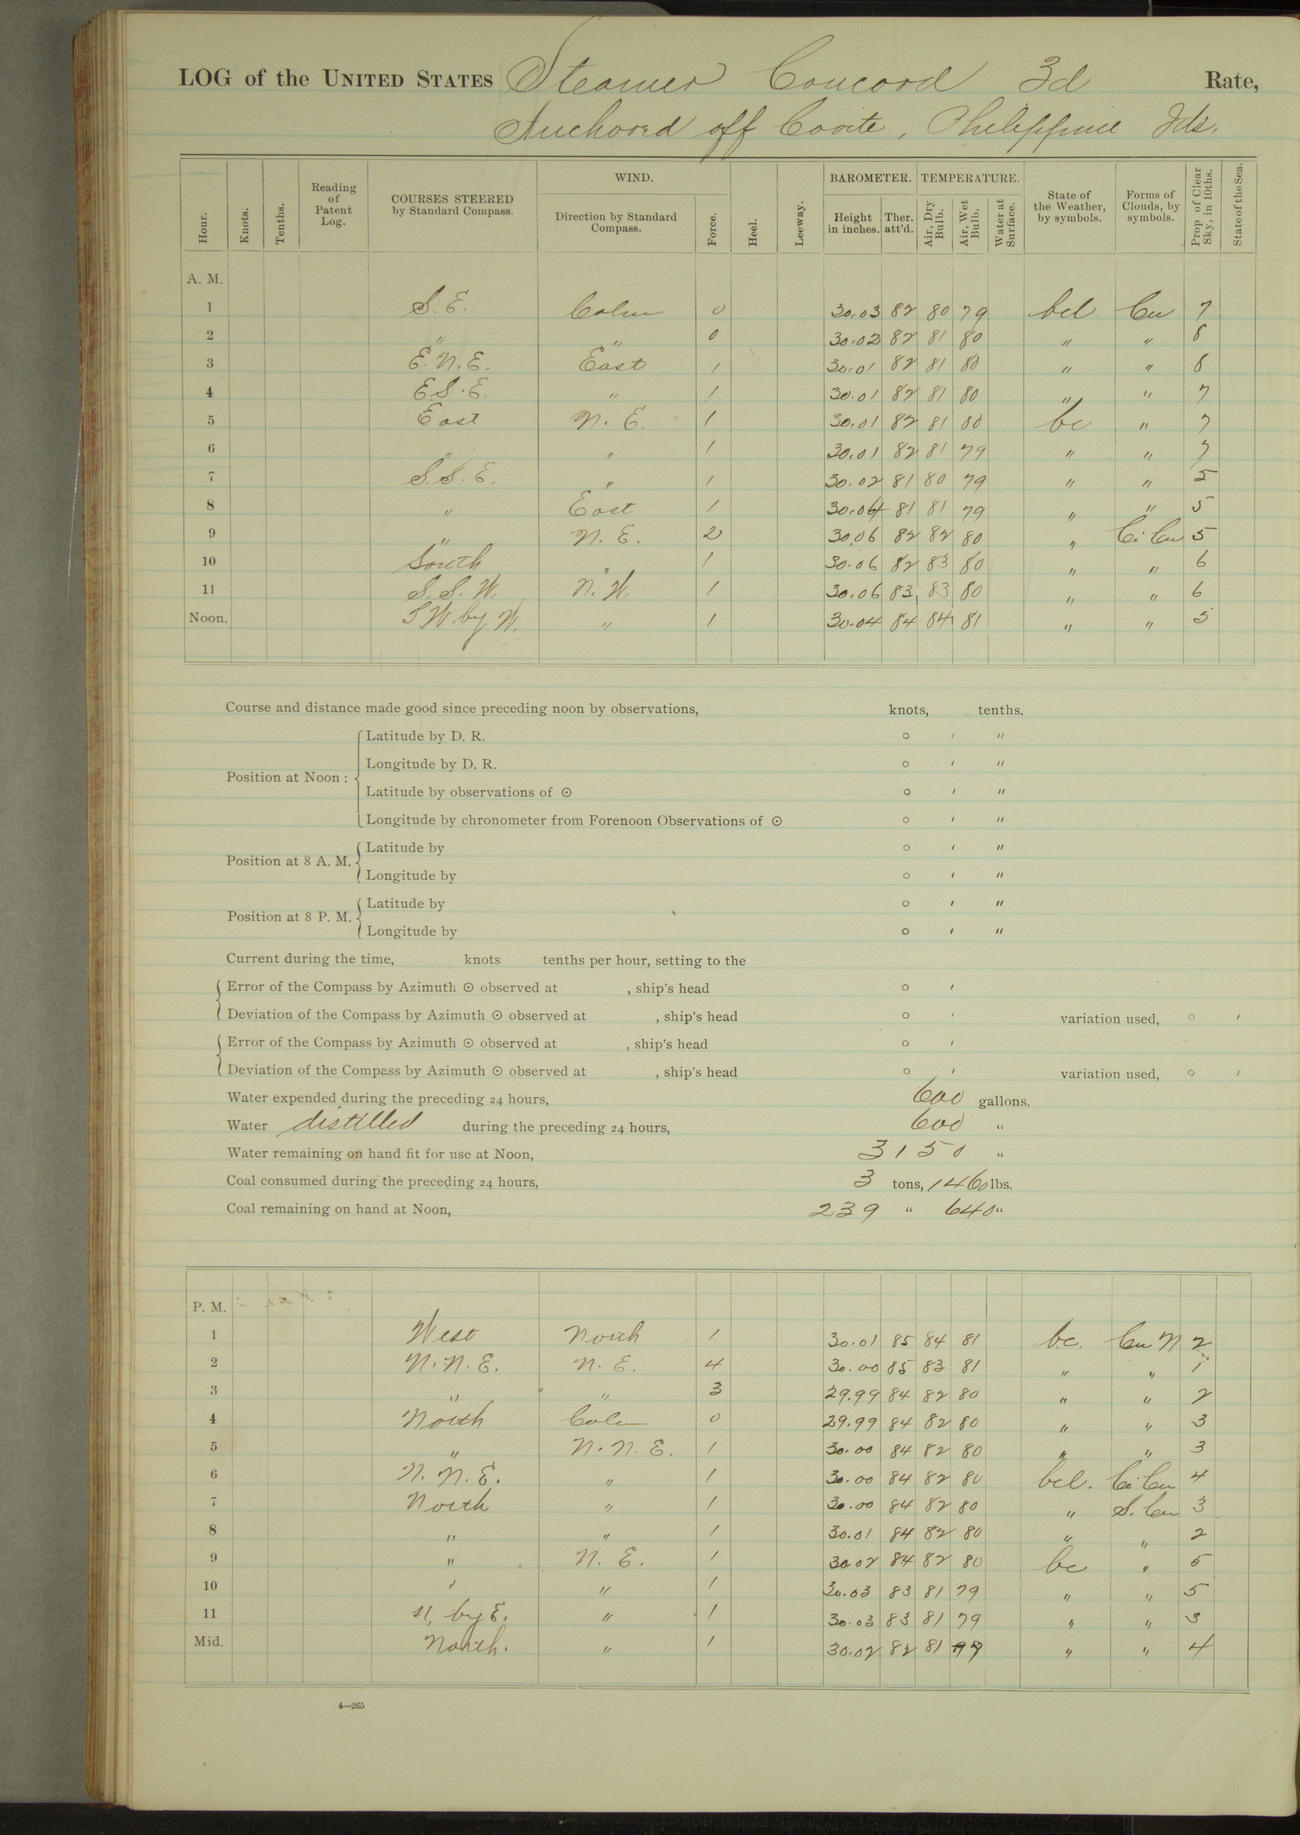 LOG of the UNITED STATES Steamer Concord 3d Rate,
Anchored off Cavite, Philippine Ids.
Hour. Knots. Tenths. Reading of Patent Log. COURSES STEERED by Standard Compass. WIND. Direction by Standard Compass. Force. Heel. Leeway. BAROMETER. Height in inches. Ther. att'd. TEMPERATURE. Air, Dry Bulb. Air, Wet Bulb. Water at Surface. State of the Weather, by symbols. Forms of Clouds, by symbols. Prop. of Clear Sky, in 10ths. State of the Sea.
A. M.
1 S. E. Calm 0 30.03 82 80 79 bcl Cu 7
2 " " 0 30.02 82 81 80 " " 8
3 E. N. E. East 1 30.01 82 81 80 " " 8
4 E S. E. " 1 30.01 82 81 80 " " 7
5 East N. E. 1 30.01 82 81 80 bc " 7
6 " " 1 30.01 82 81 79 " " 7
7 S. S. E. " 1 30.02 81 80 79 " " 5
8 " East 1 30.04 81 81 79 " " 5
9 " N. E. 2 30.06 82 82 80 " Ci Cu 5
10 South " 1 30.06 82 83 80 " " 6
11 S. S. W. N. W. 1 30.06 83 83 80 " " 6
Noon. S W. by W. " 1 30.04 84 84 81 " " 5
Course and distance made good since preceding noon by observations, knots, tenths.
Position at Noon:
Latitude by D. R. ° ′ ″
Longitude by D. R. ° ′ ″
Latitude by observations of ⊙ ° ′ ″
Longitude by chronometer from Forenoon Observations of ⊙ ° ′ ″
Position at 8 A. M.
Latitude by ° ′ ″
Longitude by ° ′ ″
Position at 8 P. M.
Latitude by ° ′ ″
Longitude by ° ′ ″
Current during the time, knots tenths per hour, setting to the
Error of the Compass by Azimuth ⊙ observed at , ship's head ° ′
Deviation of the Compass by Azimuth ⊙ observed at , ship's head ° ′ variation used, ° ′
Error of the Compass by Azimuth ⊙ observed at , ship's head ° ′
Deviation of the Compass by Azimuth ⊙ observed at , ship's head ° ′ variation used, ° ′
Water expended during the preceding 24 hours, 600 gallons.
Water distilled during the preceding 24 hours, 600 "
Water remaining on hand fit for use at Noon, 3150 "
Coal consumed during the preceding 24 hours, 3 tons, 1460 lbs.
Coal remaining on hand at Noon, 239 " 640 "
P. M.
1 West North 1 30.01 85 84 81 b.c. Cu N 2
2 N. N. E. N. E. 4 30.00 85 83 81 " " 1
3 " " 3 29.99 84 82 80 " " 2
4 North Calm 0 29.99 84 82 80 " " 3
5 " N. N. E. 1 30.00 84 82 80 " " 3
6 N. N. E. " 1 30.00 84 82 80 bcl. Ci Cu 4
7 North " 1 30.00 84 82 80 " S. Cu 3
8 " " 1 30.01 84 82 80 " " 2
9 " N. E. 1 30.02 84 82 80 bc " 5
10 " " 1 30.03 83 81 79 " " 5
11 N. by E. " 1 30.03 83 81 79 " " 3
Mid. North. " 1 30.02 82 81 79 " " 4
4—265